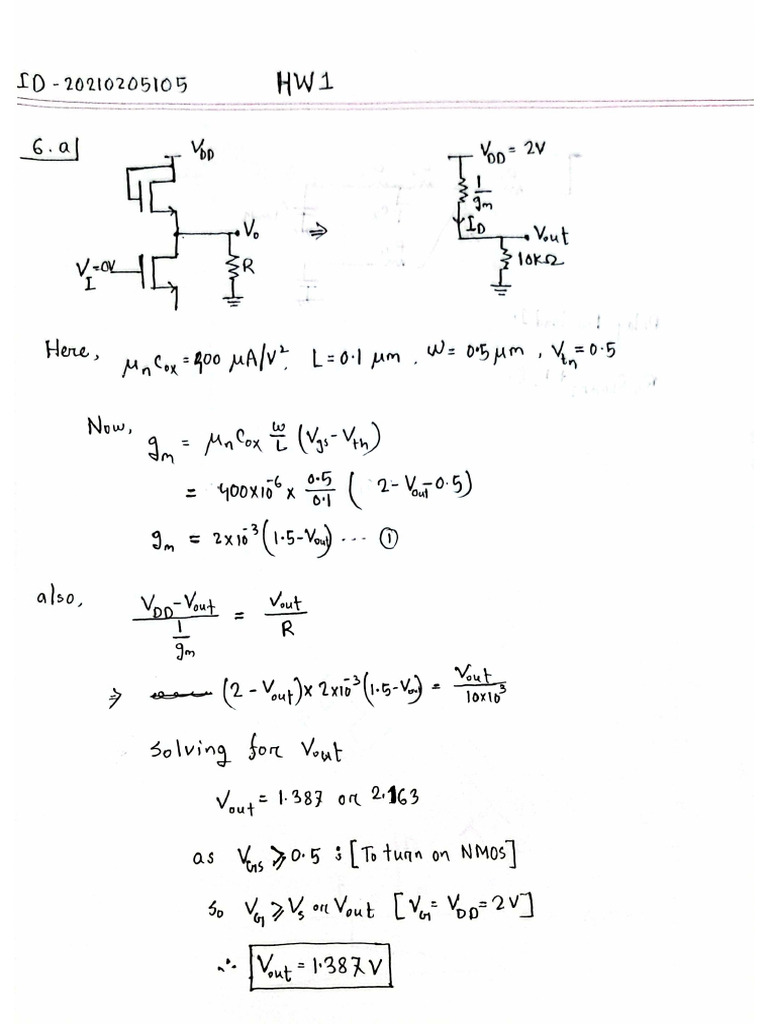 ID-20210205105 HW1
6.a]
V_DD
V_I=0V
V_o
R
⇒
V_DD = 2V
1/g_m
I_D
V_out
10KΩ
Here, μ_n C_ox = 400 μA/V². L = 0.1 μm, W = 0.5 μm, V_tn = 0.5
Now, g_m = μ_n C_ox W/L (V_gs - V_th)
= 400×10⁻⁶ × 0.5/0.1 (2 - V_out - 0.5)
g_m = 2×10⁻³ (1.5 - V_out) ... ①
also, (V_DD - V_out)/(1/g_m) = V_out/R
⇒ (2 - V_out) × 2×10⁻³ (1.5 - V_out) = V_out/10×10³
Solving for V_out
V_out = 1.387 or 2.163
as V_GS ⩾ 0.5 ; [To turn on NMOS]
So V_G ⩾ V_S or V_out [V_G = V_DD = 2V]
∴ V_out = 1.387 V